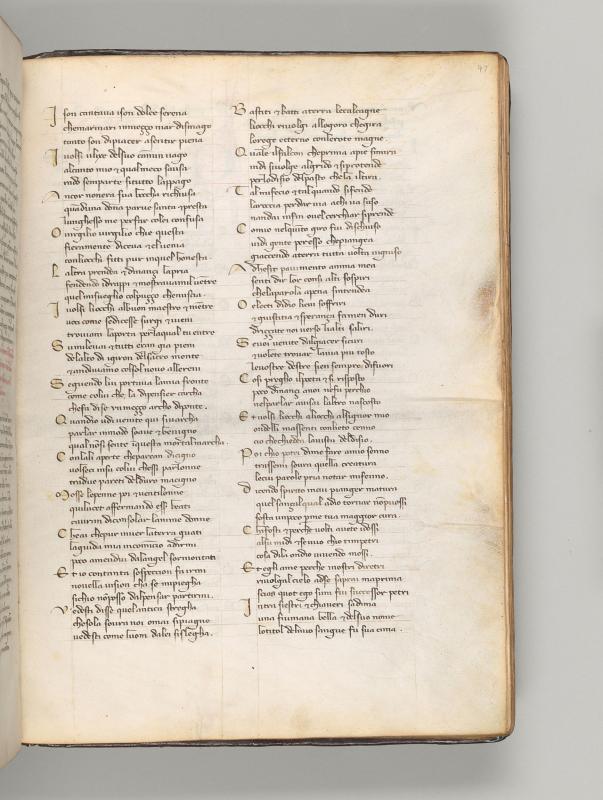 47
I son cantaua ison dolce serena
chemarinari inmezzo mar dismago
tanto son dipiacer asentir piena
I uolsi ulixe delsuo camin uago
alcanto mio & qual meco sausa
rado semparte situtto lappago
A ncor nonera sua boccha richiusa
quandiuna dona parue santa & presta
lunghesso me perfar colei confusa
O uirgilio uirgilio chie questa
fieramente diceua & eluenia
conliocchi fitti pur inquel honesta
L altra prendea & dinanzi lapria
fendendo idrappi & mostrauamil uentre
quel misueglio colpuzzo chenuscia
I uolsi liocchi albuon maestro & mentre
uoci come sedicesse surgi & uieni
trouiam laporta perlaqual tu entre
S u mileuai & tutti eran gia pieni
delalto di igiron delsacro monte
& andauamo colsol nouo alle reni
S eguendo lui portiua lamia fronte
come colui che la dipensier carcha
chefa dise unmezzo archo diponte.
Q uandio udi uenite qui siuarcha
parlar inmodo soaue & benigno
qual no si sente inquesta mortal marcha.
C on lali aperte cheparean dicigno
uolseci insu colui chessi parlonne
tradue pareti delduro macigno
M osse lepenne poi & uentilonne
quilucet affermando esse beati
cauran diconsolar lanime donne
C heai chepur inuer laterra guati
laguida mia incomincio adirmi
poco amendui dalangel sormontati
E t io contanta sospecion fa irmi
nouella uision cha se mipiegha
sichio nonposso dalpensar partirmi.
V edesti disse quelantica stregha
chesola soura noi omai sipiagne
uedesti come luom dalei sislegha.
B astiti & batti aterra lecalcagne
liocchi riuolgi allogoro chegira
lorege etterno conlerote magne.
Q uale ilfalcon cheprima apie simira
indi siuolge algrido & siprotende
perlodisio delpasto che la iltira.
T al mifecio & tal quando sifende
laroccia perdar uia achi ua suso
nandai insin ouel cerchiar siprende
C omio nelquinto giro fui dischiuso
uidi gente peresso chepiangea
giaccendo aterra tutta uolta ingiuso
A dhesit pauimento anima mea
senti dir lor consi alti sospiri
chelaparola apena sintendea
O electi didio licui soffriri
& giustitia & speranza fa men duri
drizzate noi uerso lialti saliri.
S e uoi uenite dalgiacer sicuri
& uolete trouar lauia piu tosto
leuostre destre sien sempre difuori
C osi pregho ilpoeta & si risposto
poco dinanzi anoi nefu perchio
nelparlar auisai laltro nascosto
E t uolsi liocchi aliocchi alsignor mio
ondelli massenti conlieto cenno
cio chechiedea lauista deldisio.
P oi chio potei dime fare amio senno
trassemi soura quella creatura
lecui parole pria notar mifenno.
D icendo spirto incui pianger matura
quel sanzal qual adio tornar nonpuossi
sosta unpoco perme tua maggior cura.
C hi fosti & perche uolti auete idossi
alsu midi & seuuo chio timpetri
cosa dila ondio uiuendo mossi.
E t egli ame perche inostri diretri
riuolga ilcielo adse saprai maprima
scias quot ego sum fui successor petri
I ntra siestri & chiaueri sadima
una fiumana bella & delsuo nome
lotitol delmio sangue fa sua cima.